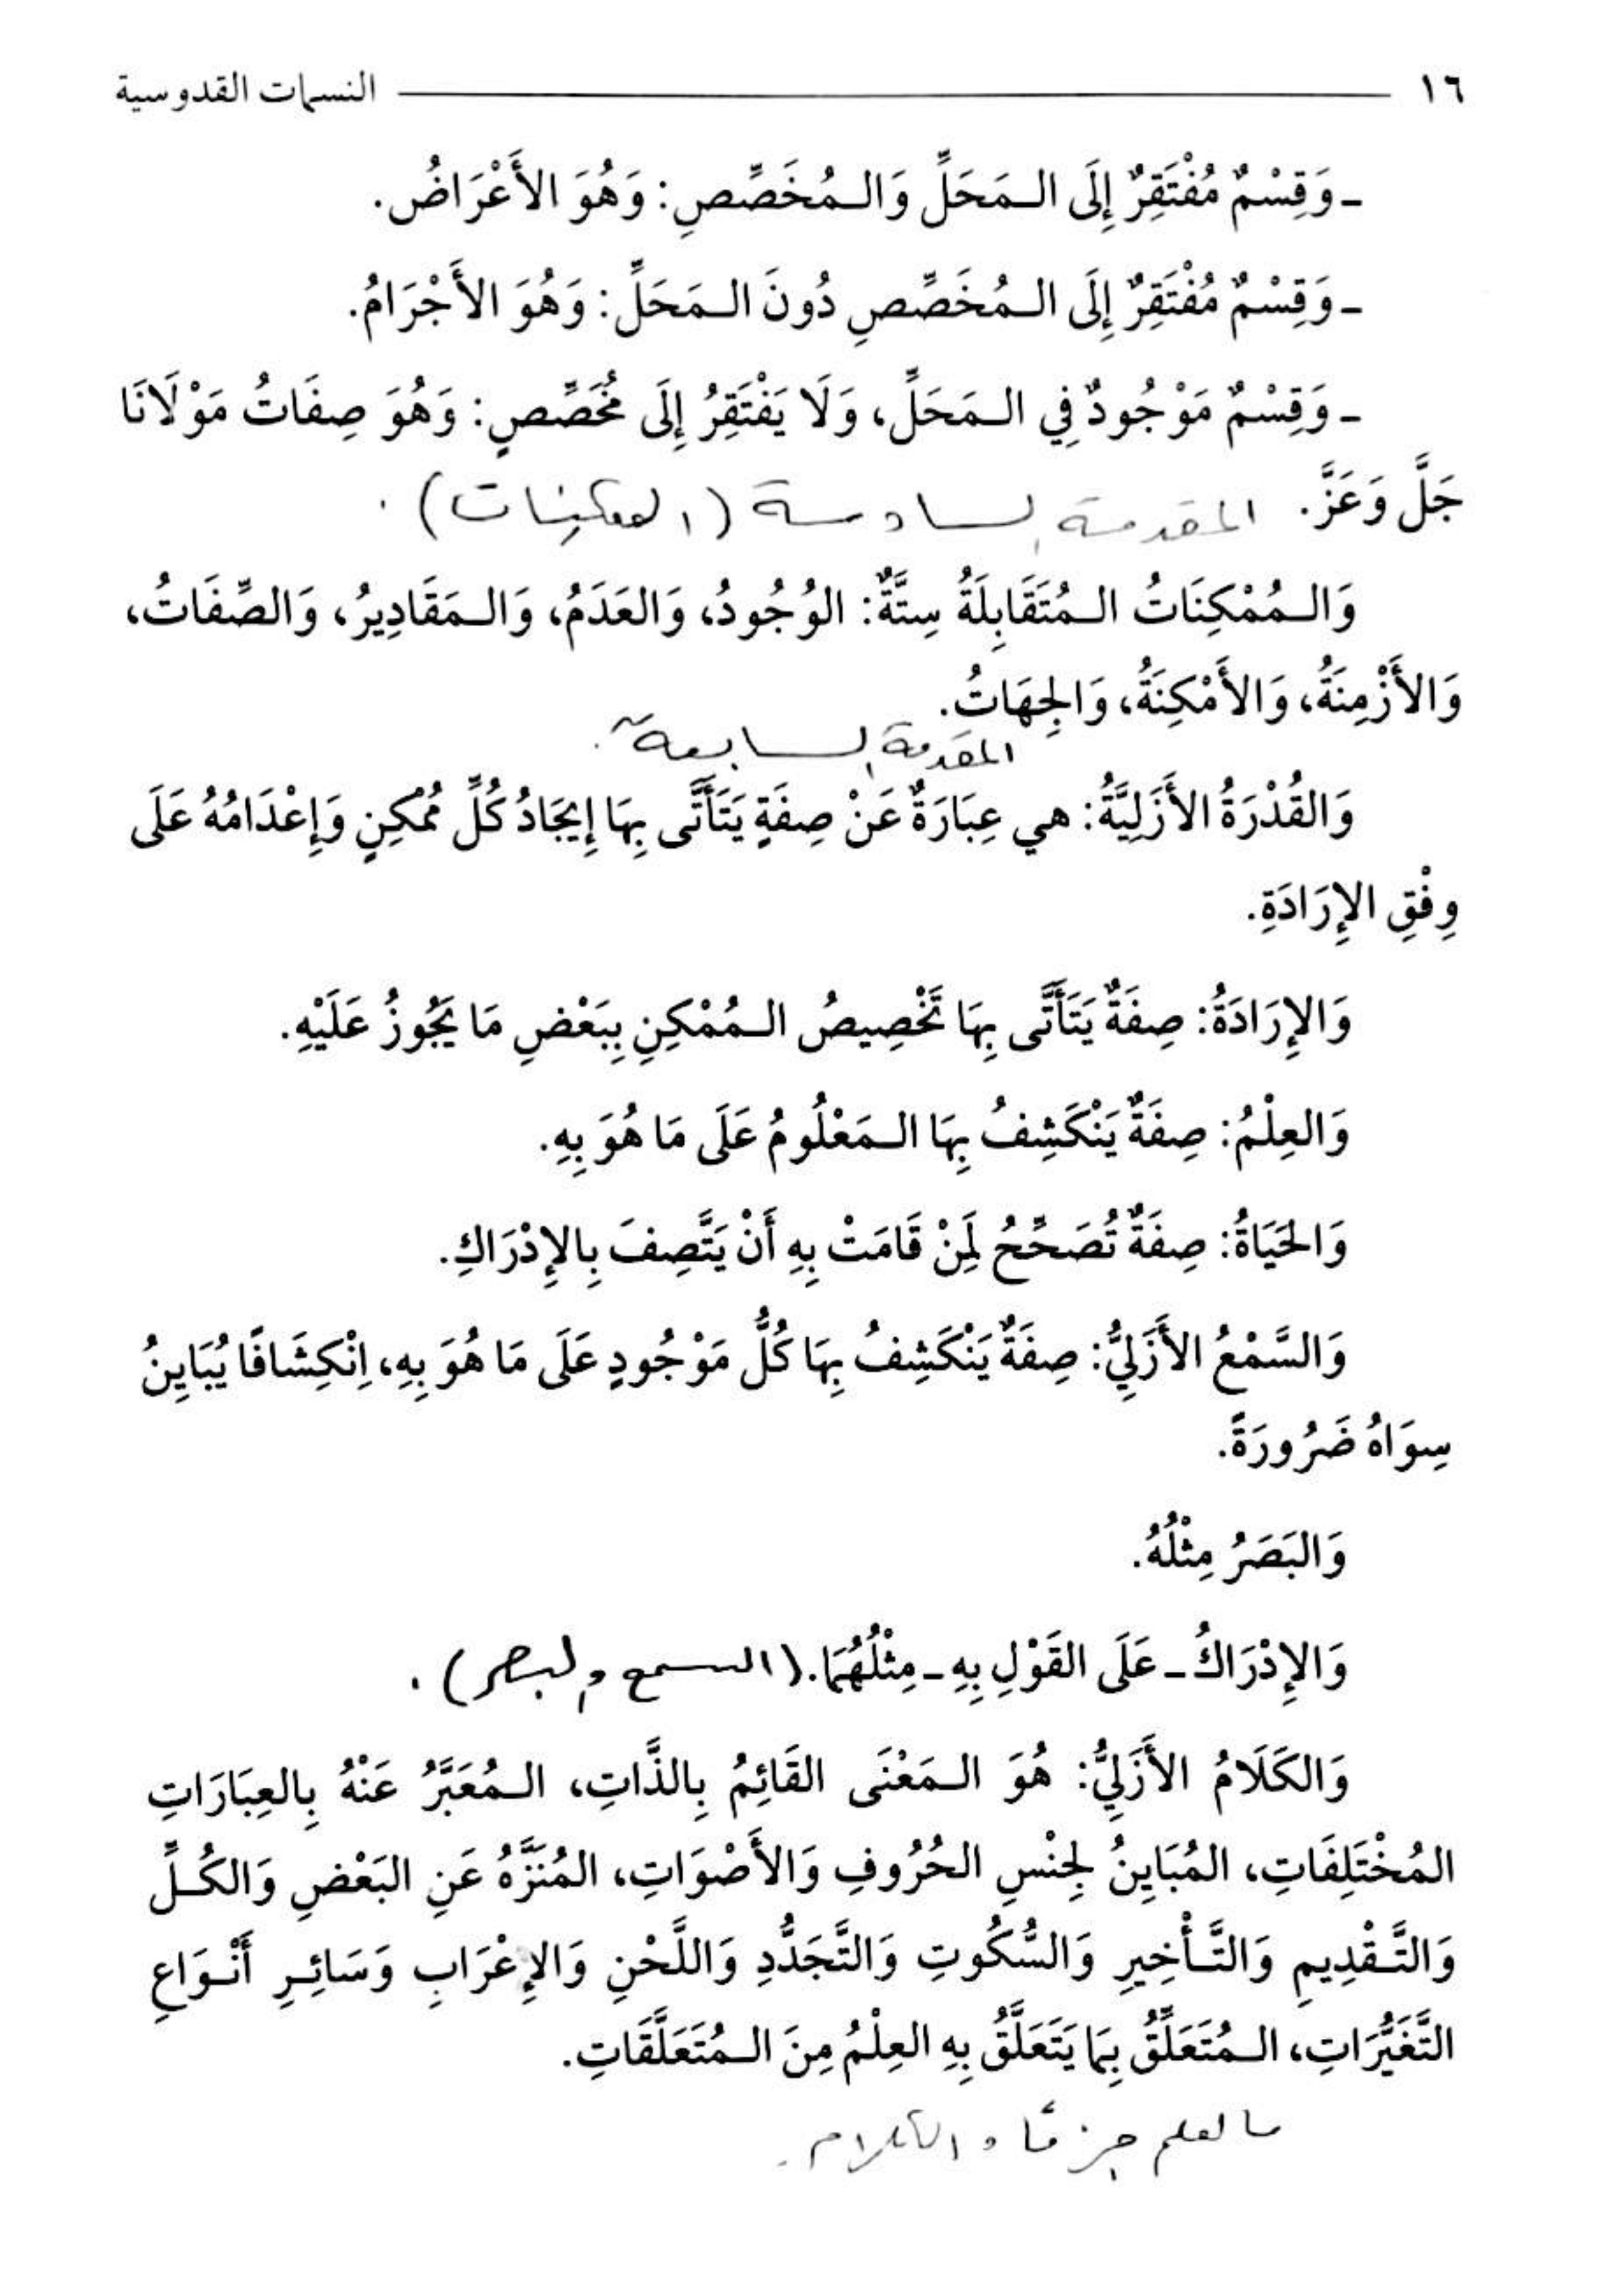 ١٦ النسمات القدوسية
ـ وَقِسْمٌ مُفْتَقِرٌ إِلَى الـمَحَلِّ وَالـمُخَصِّصِ: وَهُوَ الأَعْرَاضُ.
ـ وَقِسْمٌ مُفْتَقِرٌ إِلَى الـمُخَصِّصِ دُونَ الـمَحَلِّ: وَهُوَ الأَجْرَامُ.
ـ وَقِسْمٌ مَوْجُودٌ فِي الـمَحَلِّ، وَلَا يَفْتَقِرُ إِلَى مُخَصِّصٍ: وَهُوَ صِفَاتُ مَوْلَانَا
جَلَّ وَعَزَّ. المقدمة السادسة (الممكنات).
وَالـمُمْكِنَاتُ الـمُتَقَابِلَةُ سِتَّةٌ: الوُجُودُ، وَالعَدَمُ، وَالـمَقَادِيرُ، وَالصِّفَاتُ،
وَالأَزْمِنَةُ، وَالأَمْكِنَةُ، وَالجِهَاتُ.
المقدمة السابعة.
وَالقُدْرَةُ الأَزَلِيَّةُ: هي عِبَارَةٌ عَنْ صِفَةٍ يَتَأَتَّى بِهَا إِيجَادُ كُلِّ مُمْكِنٍ وَإِعْدَامُهُ عَلَى
وِفْقِ الإِرَادَةِ.
وَالإِرَادَةُ: صِفَةٌ يَتَأَتَّى بِهَا تَخْصِيصُ الـمُمْكِنِ بِبَعْضِ مَا يَجُوزُ عَلَيْهِ.
وَالعِلْمُ: صِفَةٌ يَنْكَشِفُ بِهَا الـمَعْلُومُ عَلَى مَا هُوَ بِهِ.
وَالحَيَاةُ: صِفَةٌ تُصَحِّحُ لِمَنْ قَامَتْ بِهِ أَنْ يَتَّصِفَ بِالإِدْرَاكِ.
وَالسَّمْعُ الأَزَلِيُّ: صِفَةٌ يَنْكَشِفُ بِهَا كُلُّ مَوْجُودٍ عَلَى مَا هُوَ بِهِ، اِنْكِشَافًا يُبَايِنُ
سِوَاهُ ضَرُورَةً.
وَالبَصَرُ مِثْلُهُ.
وَالإِدْرَاكُ ـ عَلَى القَوْلِ بِهِ ـ مِثْلُهُمَا. (السمع والبصر).
وَالكَلَامُ الأَزَلِيُّ: هُوَ الـمَعْنَى القَائِمُ بِالذَّاتِ، الـمُعَبَّرُ عَنْهُ بِالعِبَارَاتِ
المُخْتَلِفَاتِ، المُبَايِنُ لِجِنْسِ الحُرُوفِ وَالأَصْوَاتِ، المُنَزَّهُ عَنِ البَعْضِ وَالكُلِّ
وَالتَّقْدِيمِ وَالتَّأْخِيرِ وَالسُّكُوتِ وَالتَّجَدُّدِ وَاللَّحْنِ وَالإِعْرَابِ وَسَائِرِ أَنْوَاعِ
التَّغَيُّرَاتِ، الـمُتَعَلِّقُ بِمَا يَتَعَلَّقُ بِهِ العِلْمُ مِنَ الـمُتَعَلَّقَاتِ.
والكلام.